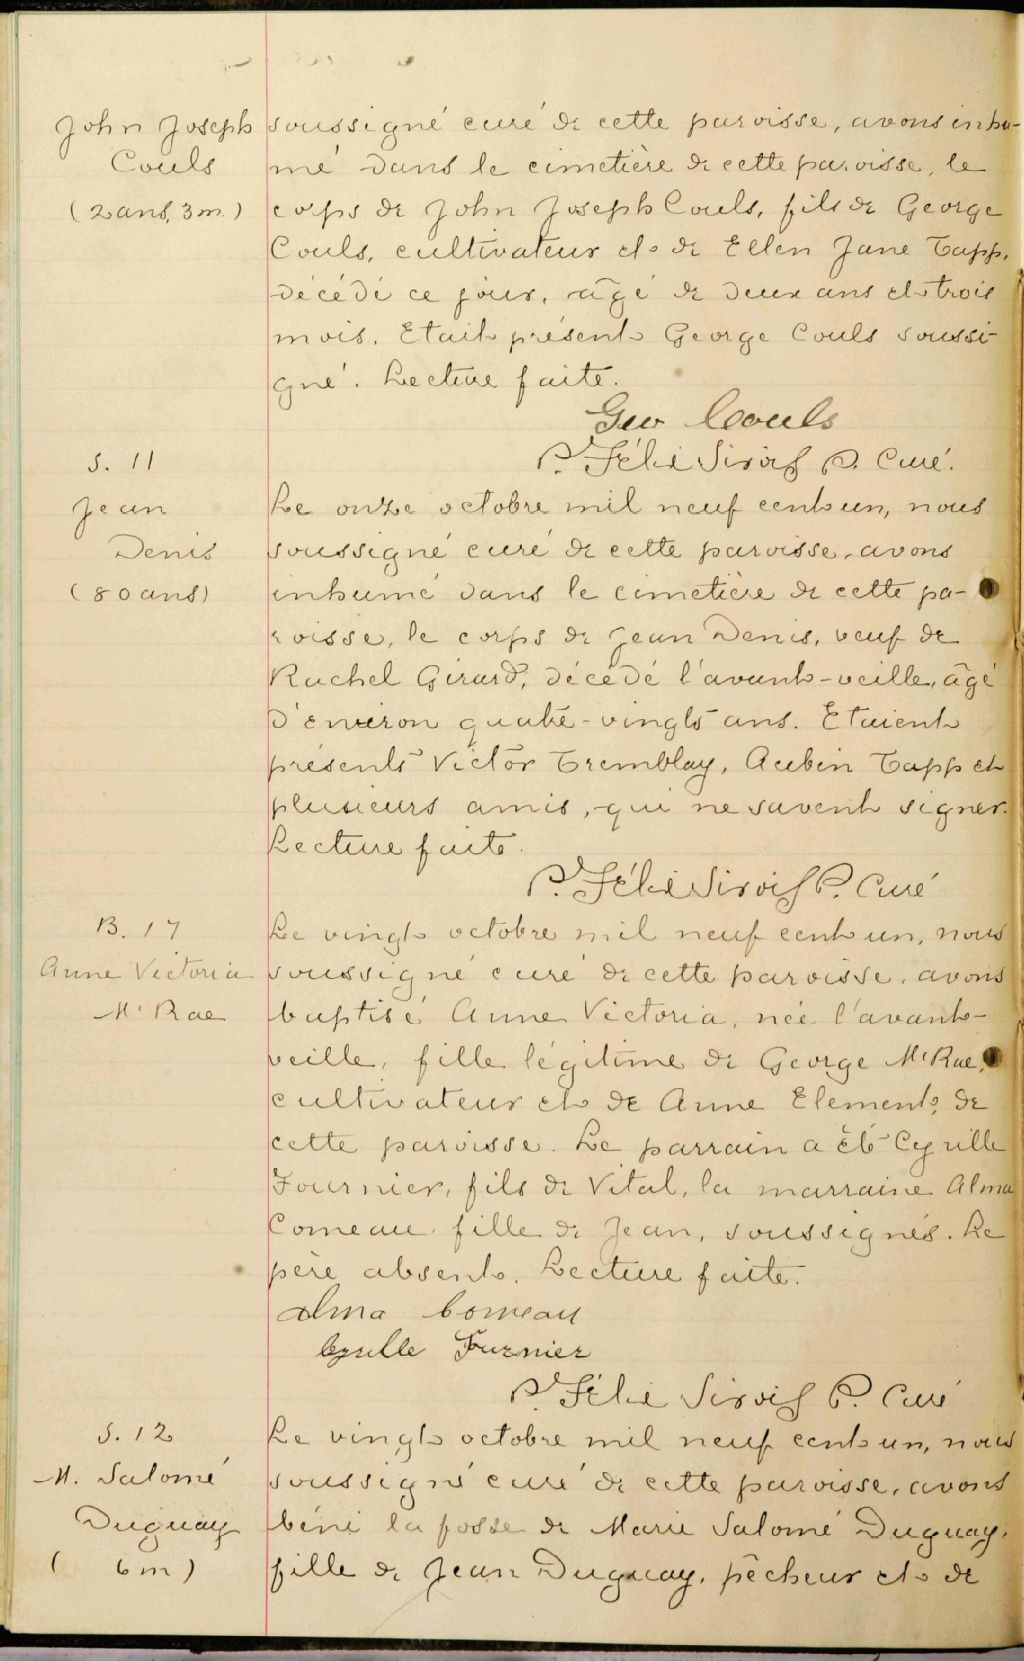 John Joseph
Couls
(2 ans, 3 m.)
soussigné curé de cette paroisse, avons inhu-
mé dans le cimetière de cette paroisse, le
corps de John Joseph Couls, fils de George
Couls, cultivateur et de Ellen Jane Tapp,
décédé ce jour, âgé de deux ans et trois
mois. Etait présent George Couls soussi-
gné. Lecture faite.
Geo Couls
P. Félix Sirois P. Curé.
S. 11
Jean
Denis
(80 ans)
Le onze octobre mil neuf cent un, nous
soussigné curé de cette paroisse, avons
inhumé dans le cimetière de cette pa-
roisse, le corps de Jean Denis, veuf de
Rachel Girard, décédé l'avant-veille, âgé
d'environ quatre-vingts ans. Etaient
présents Victor Tremblay, Aubin Tapp et
plusieurs amis, qui ne savent signer.
Lecture faite.
P. Félix Sirois P. Curé
B. 17
Anne Victoria
Mc Rae
Le vingt octobre mil neuf cent un, nous
soussigné curé de cette paroisse, avons
baptisé Anne Victoria, née l'avant-
veille, fille légitime de George McRae,
cultivateur et de Anne Element, de
cette paroisse. Le parrain a été Cyrille
Fournier, fils de Vital, la marraine Alma
Comeau fille de Jean, soussignés. Le
père absent. Lecture faite.
Alma Comeau
Cyrille Fournier
P. Félix Sirois P. Curé
S. 12
M. Salomé
Duguay
( 6 m )
Le vingt octobre mil neuf cent un, nous
soussigné curé de cette paroisse, avons
béni la fosse de Marie Salomé Duguay,
fille de Jean Duguay, pêcheur et de